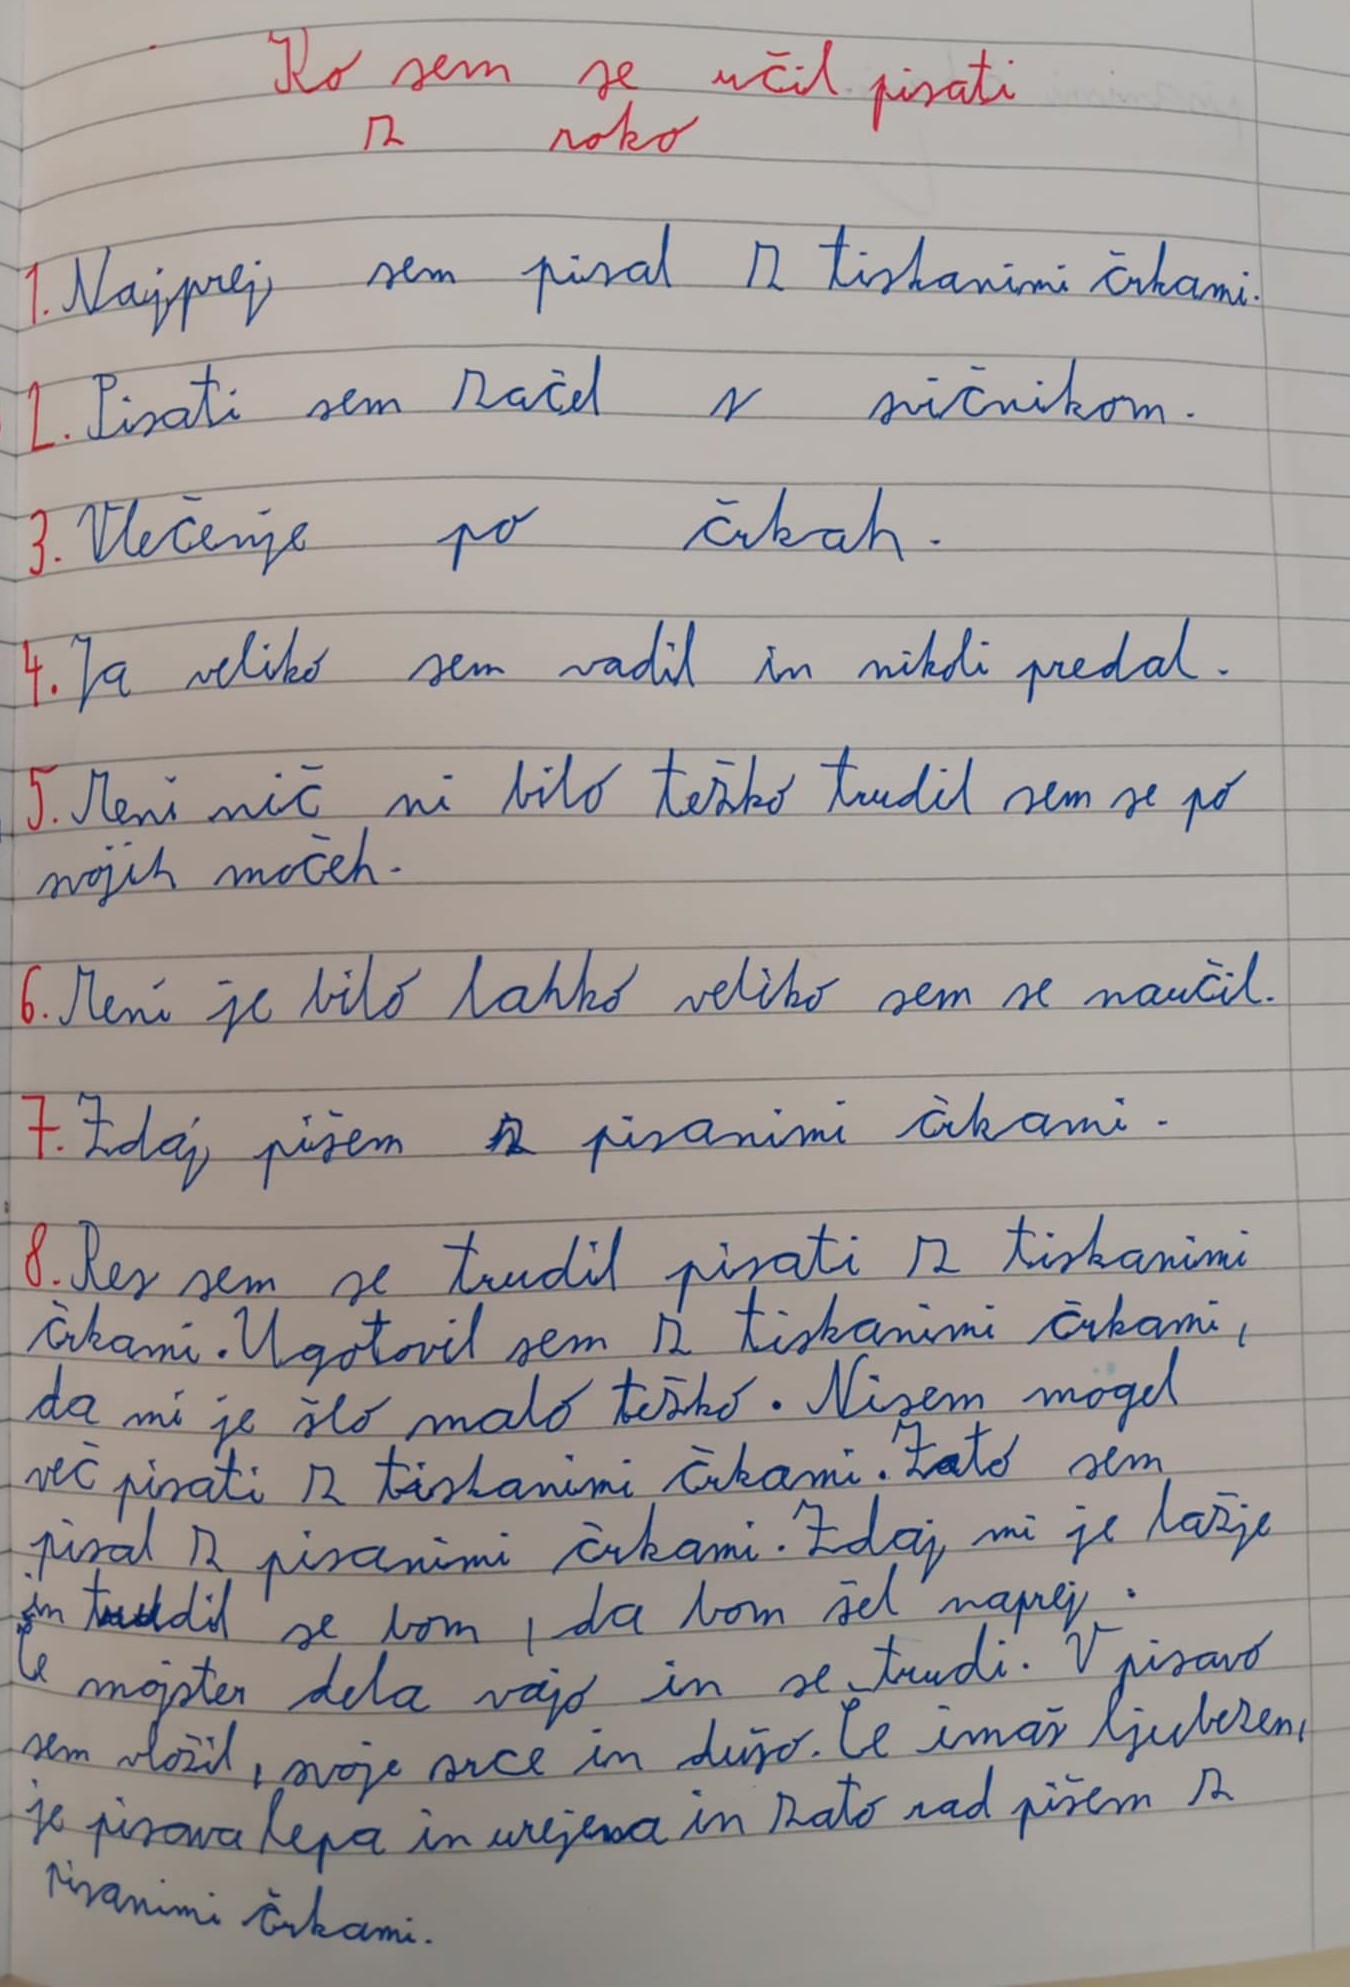 Ko sem se učil pisati
z roko
1. Najprej sem pisal z tiskanimi črkami.
2. Pisati sem začel s svičnikom.
3. Vlečenje po črkah.
4. Ja veliko sem vadil in nikoli predal.
5. Meni nič ni bilo težko trudil sem se po
svojih močeh.
6. Meni je bilo lahko veliko sem se naučil.
7. Zdaj pišem z pisanimi črkami.
8. Res sem se trudil pisati z tiskanimi
črkami. Ugotovil sem z tiskanimi črkami,
da mi je šlo malo težko. Nisem mogel
več pisati z tiskanimi črkami. Zato sem
pisal z pisanimi črkami. Zdaj mi je lažje
in trudil se bom, da bom šel naprej.
Če mojster dela vajo in se trudi. V pisavo
sem vložil, svoje srce in dušo. Če imaš ljubezen,
je pisava lepa in urejena in zato rad pišem z
pisanimi črkami.